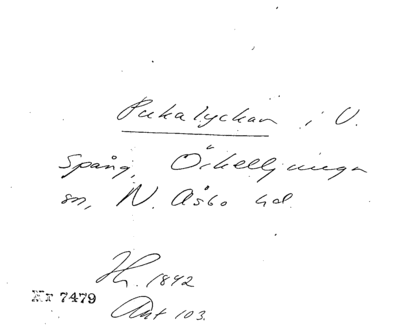 Pukalyckan i V.
Spång, Örkelljunga
sn, N. Åsbo hd.
Hr. 1842
Nr 7479
Ant 103.